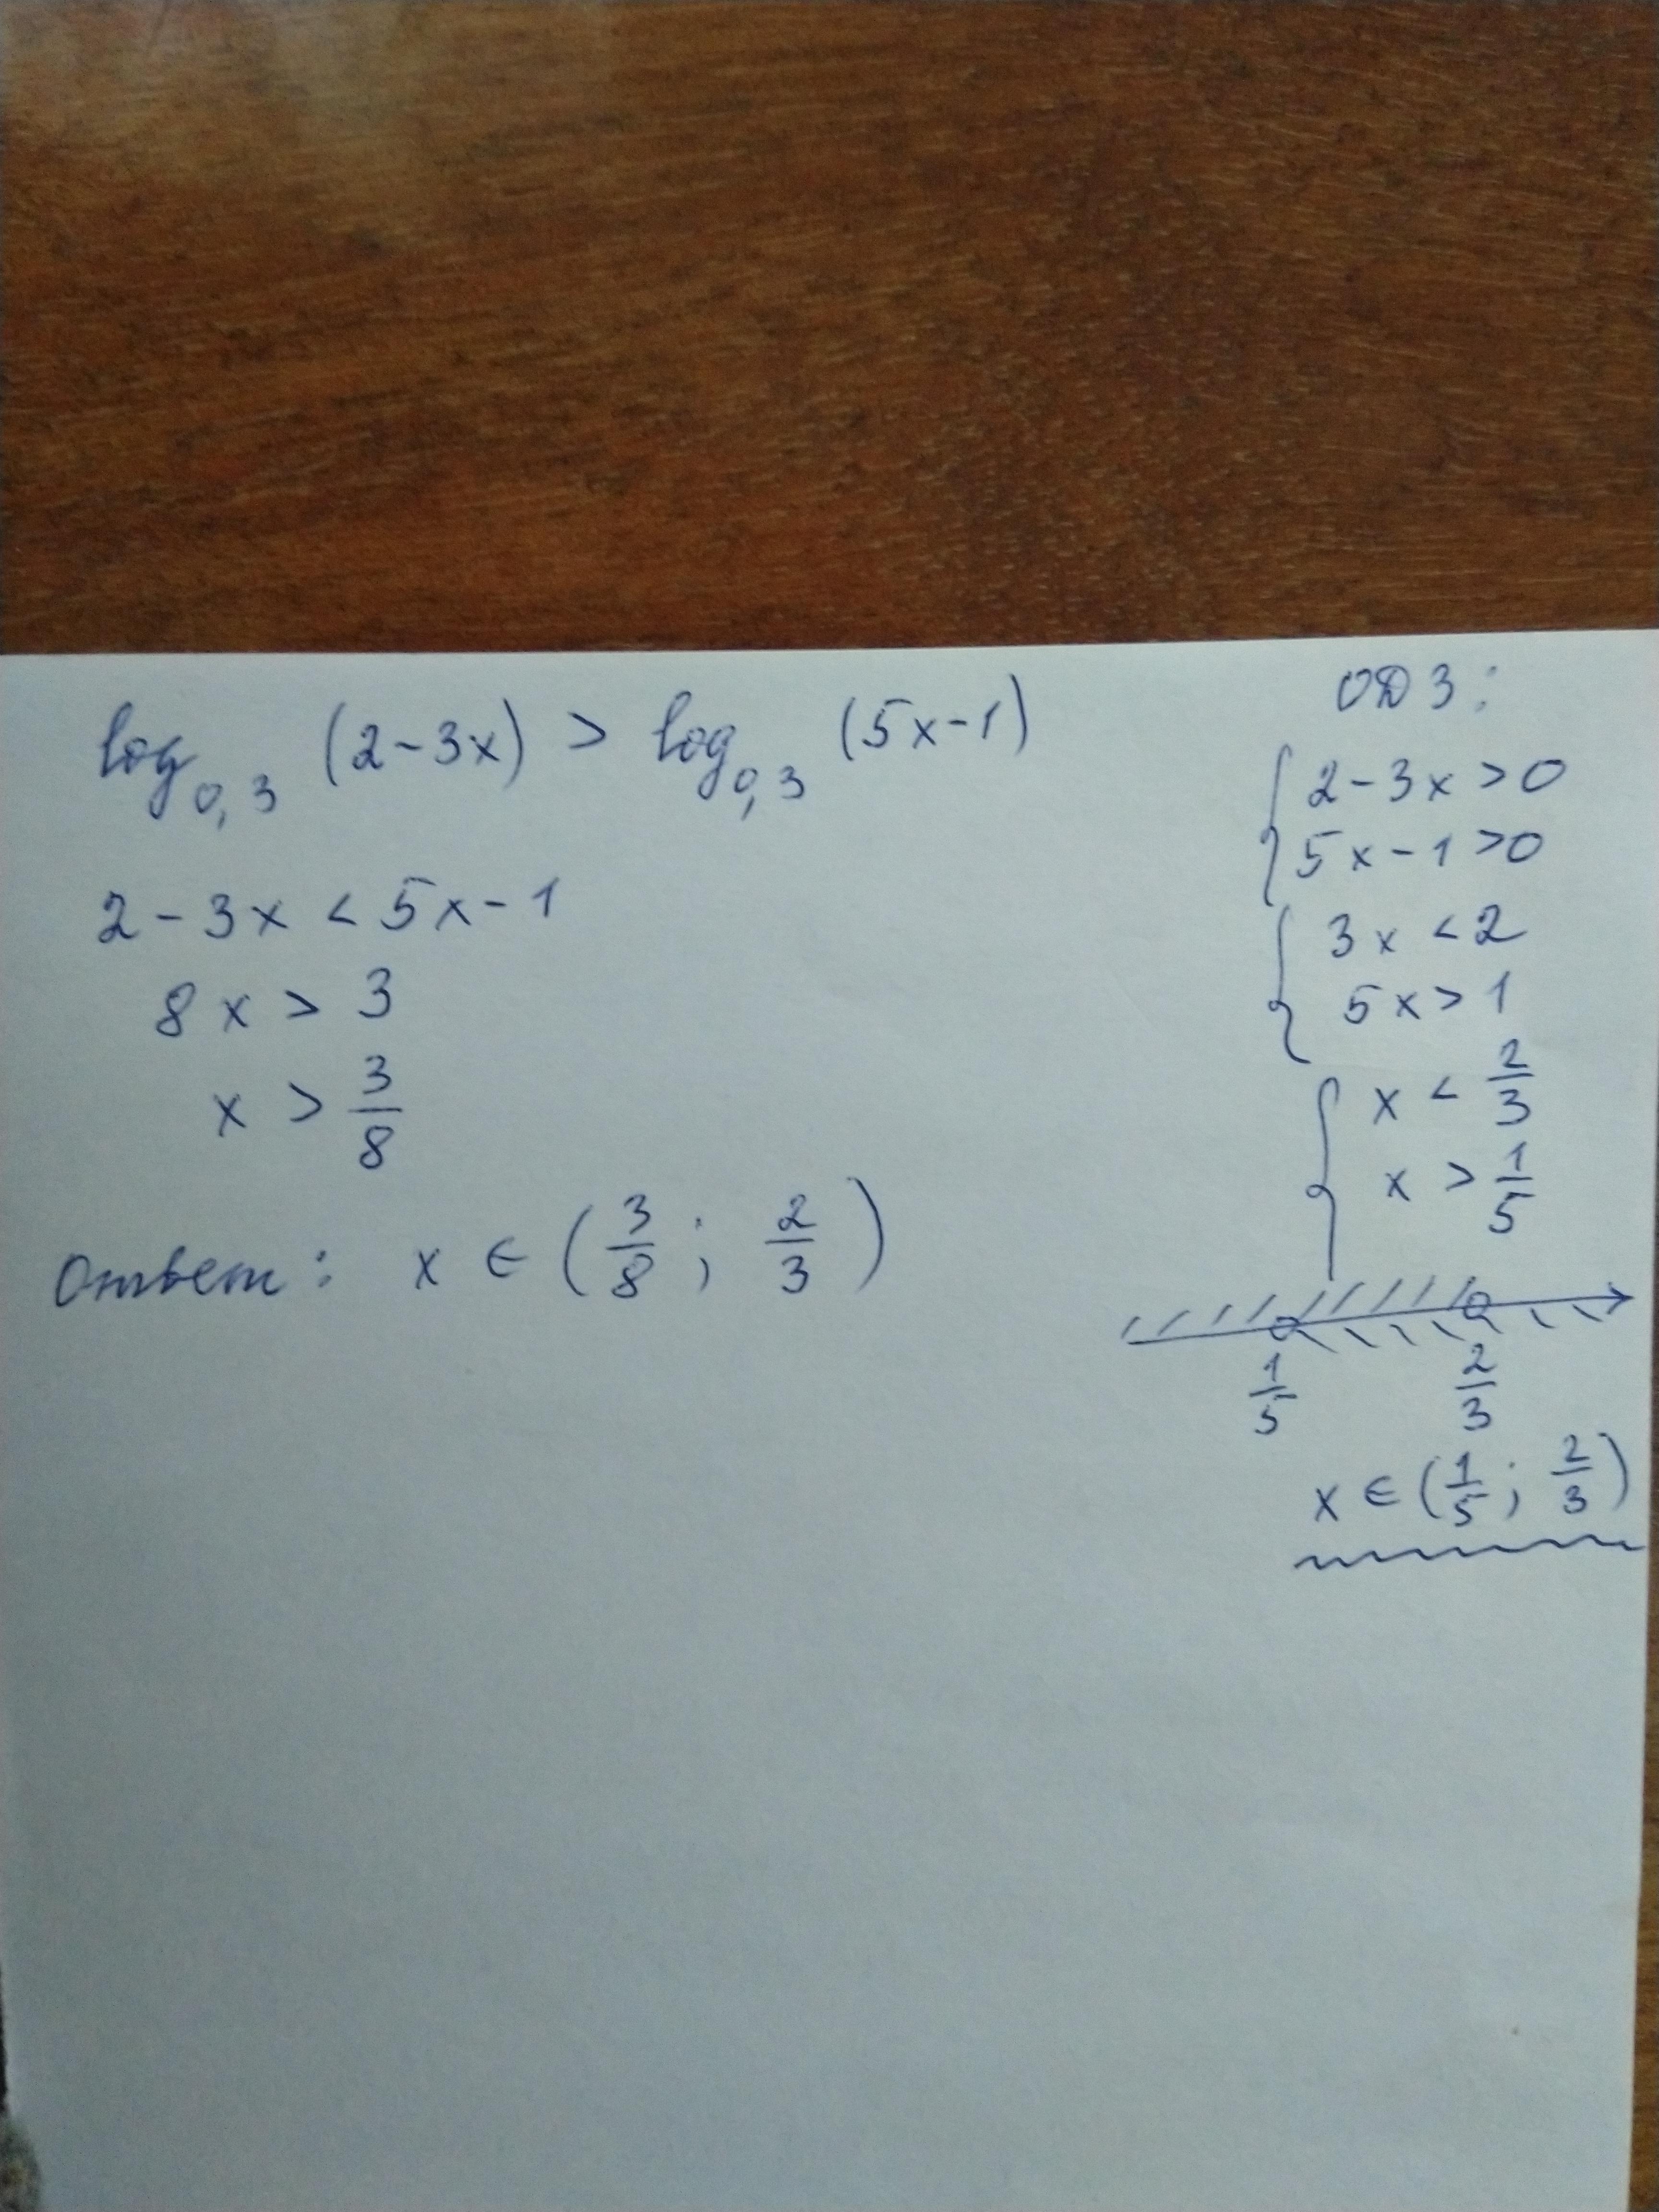 log₀,₃ (2-3x) > log₀,₃ (5x-1)
2-3x < 5x-1
8x > 3
x > 3/8
Ответ: x ∈ (3/8; 2/3)
ОДЗ:
{2-3x>0
5x-1>0
{3x<2
5x>1
{x < 2/3
x > 1/5
1/5 2/3
x ∈ (1/5; 2/3)